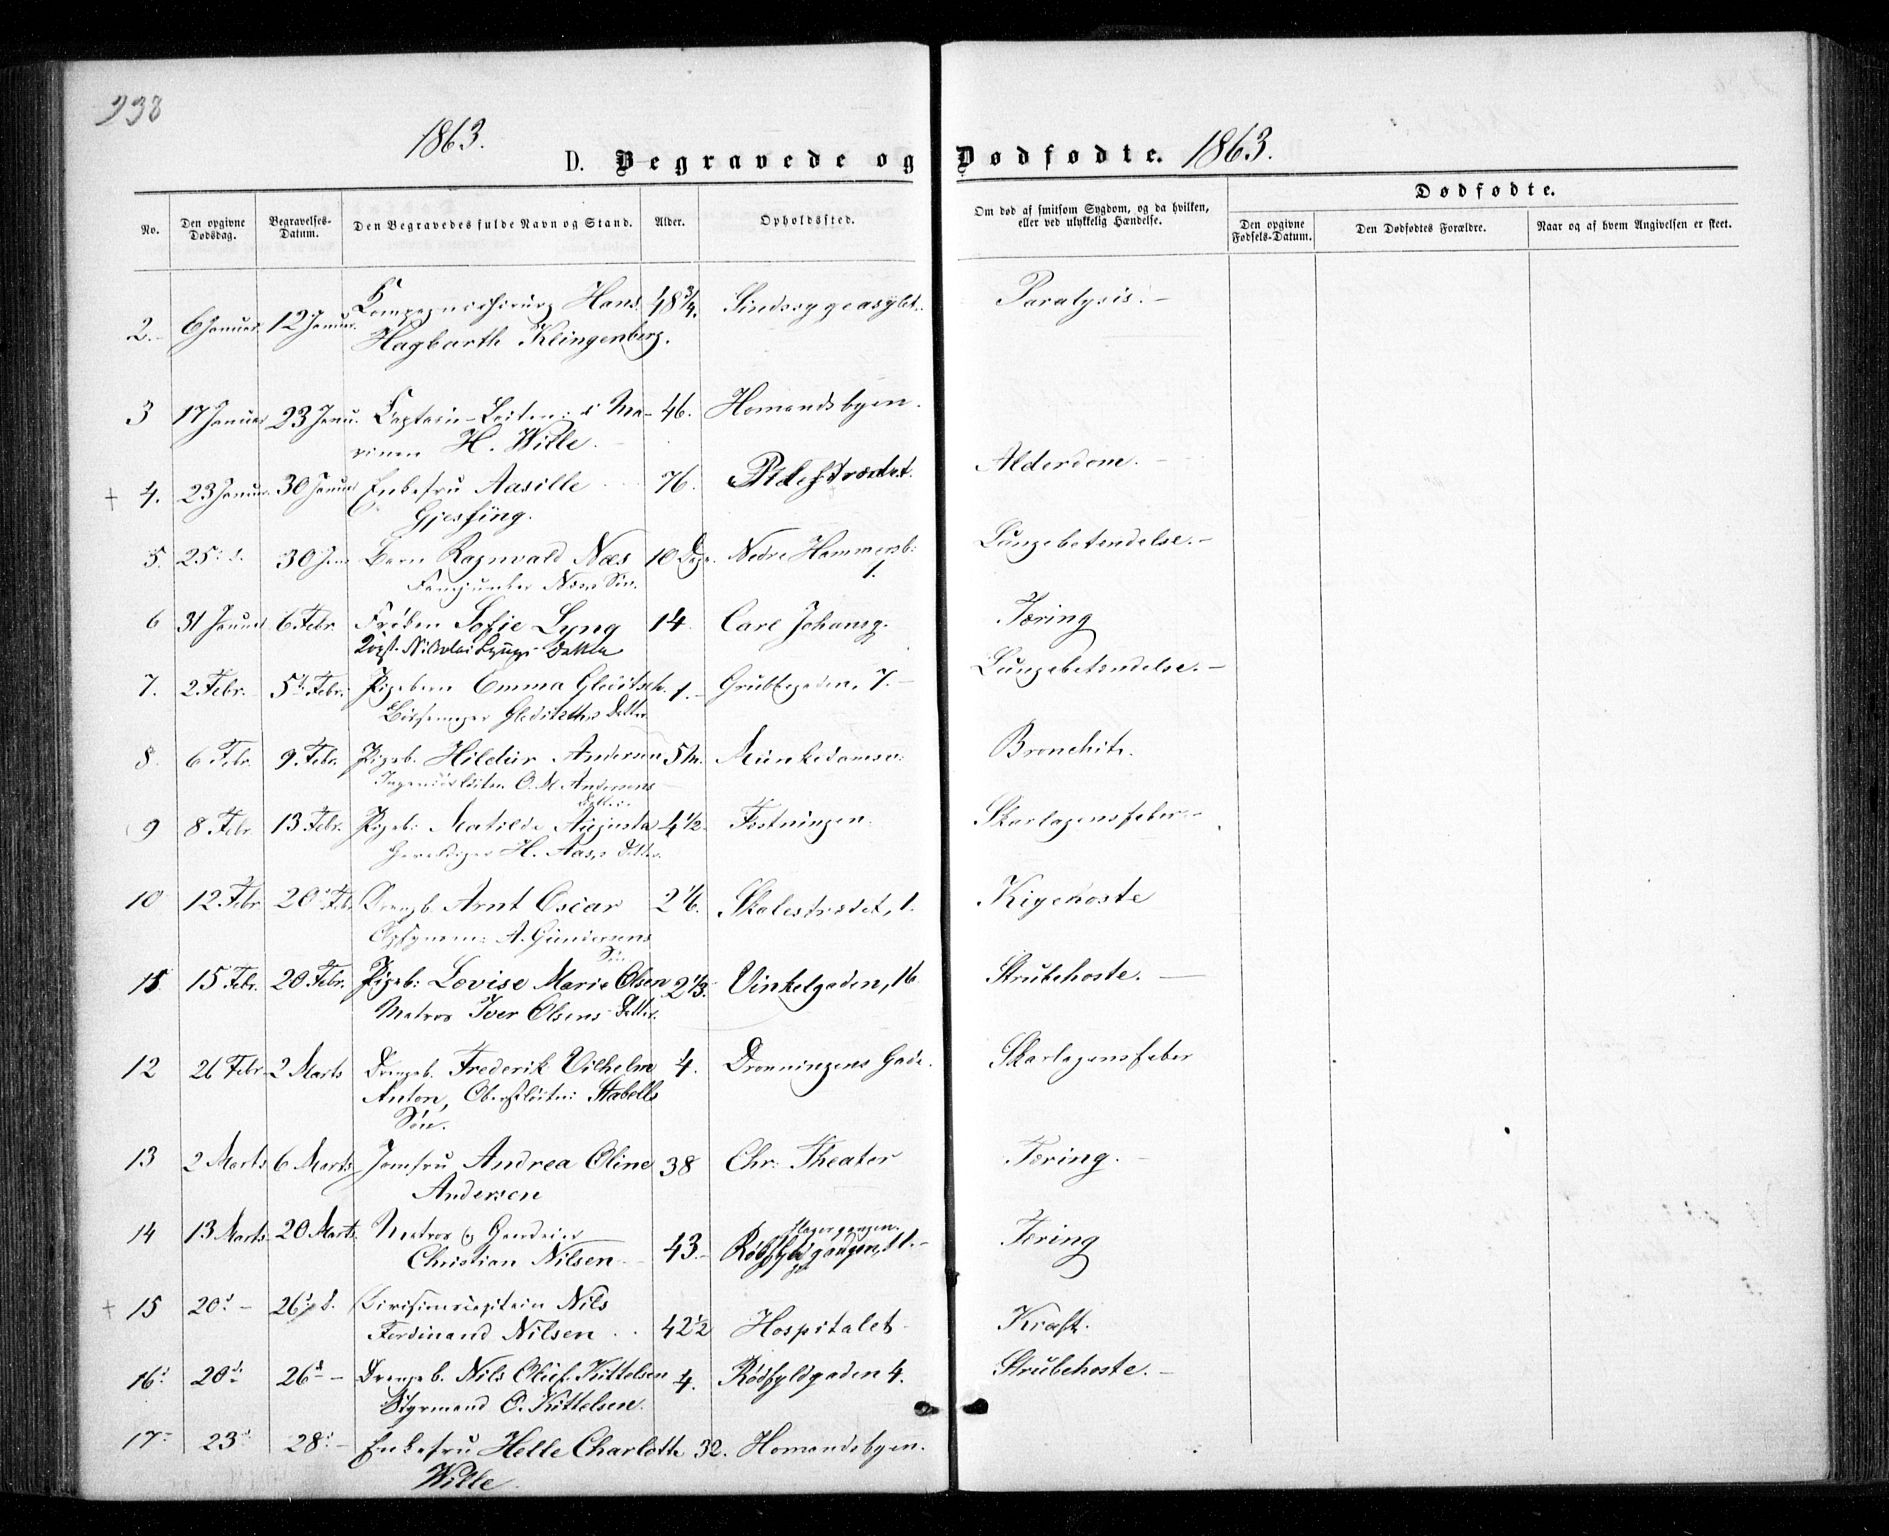 938
1863.
D. Begravede og Dødfødte. 1863.
No.
Den opgivne Dødsdag.
Begravelses-Datum.
Den Begravedes fulde Navn og Stand.
Alder.
Opholdssted.
Om død af smitsom Sygdom, og da hvilken, eller ved ulykkelig Hændelse.
Dødfødte.
Den opgivne Fødsels-Datum.
Den Dødfødtes Forældre.
Naar og af hvem Angivelsen er skeet.
2. 6 Januar. 12 Januar. Compagnichirurg Hans 48 3/4. Sindssygeasylet. Paralysis. –
Hagbarth Klingenberg.
3 17 Januar 23 Janu. Captain-Leitn: i Ma- 46. Homandsbyen.
rinen H. Wille.
+ 4. 23 Januar. 30 Januar Enkefru Aasille 76. Pilestrædet. Alderdom. –
Gjesfing.
5. 25 d. 30 Jan Barn Ragnvald Næs 10 Dage. Nedre Hammersb: Lungebetendelse. –
Fanejunker Næss Søn. 1.
6 31 Januar 6. Febr Frøken Sofie Lyng 14 Carl Johansg. Tæring
Nikolai Lyngs Datter
7. 2. Febr. 5t. Febr. Pigebarn Emma Gleditsch. 1. – Grubbegaden, 7. – Lungebetendelse. –
Bøssemager Gleditsches Datter
8. 6 Febr. 9. Febr. Pigeb. Hildur Andersen 5 M. Munkedamsv: Bronchit.
O. M. Andersens
Datter
9 8. Febr. 13 Febr. Pigeb: Matilde Augusta 4 1/2. Fæstningen. Skarlagensfeber. –
H. Aass Datter.
10 12. Febr 20 Feb. Drengeb. Arnt Oscar 2 1/6. Skolestrædet, 1. Kigehoste
A. Gundersens
Søn
15 15 Febr. 20. Febr. Pigeb: Lovise Marie Olsen 2 1/3. Vinkelgaden, 16 Strubehoste. –
Matros Iver Olsens Datter.
12 26 Febr. 2 Marts Drengeb. Frederik Vilhelm 4. Dronningens Gade. Skarlagensfeber
Anton, Oberstløitn: Stabells
Søn.
13 2 Marts 6 Marts Jomfru Andrea Oline 38 Chr: Theater Tæring. –
Andersen
14 13 Marts. 20 Marts. Matros og Gardeier 43. – Rødfyldgangen, 11. – Tæring
Slagergangen.
Christian Nilsen.
+ 15 20 d – 26 d. Divisionscaptein Nils
Ferdinand Nilsen 42 1/2 Hospitalet Kræft.
16 20 d. 26 d – Drengeb. Nils Oluf Kittelsen 4. Rødfyldgaden 4. Strubehoste. –
Styrmand O. Kittelsen.
17 23 28 – Enkefru Helle Charlotte 32. Homandsbyen.
Wille.